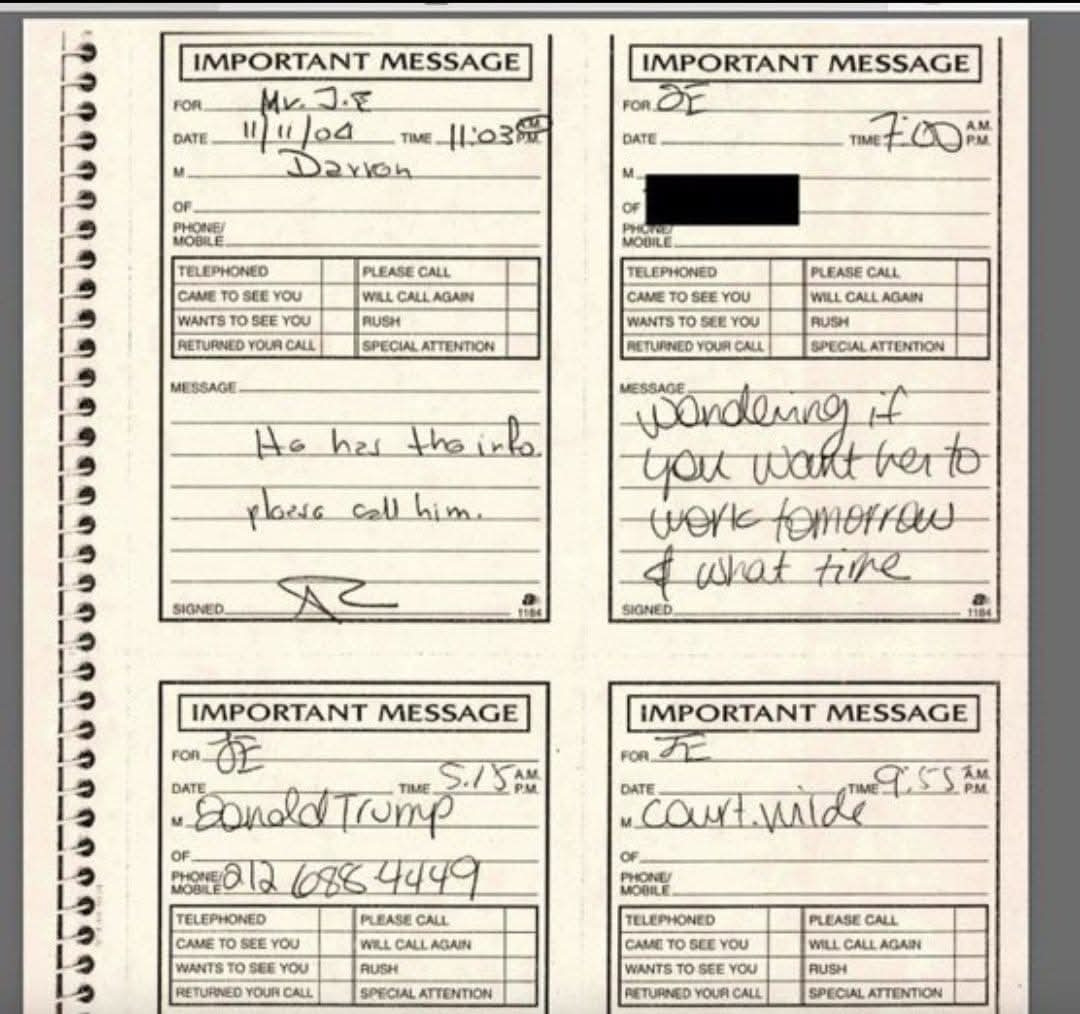 IMPORTANT MESSAGE
FOR Mr. J.E
DATE 11/11/04 TIME 11:03 A.M. P.M.
M Darren
OF
PHONE/
MOBILE
TELEPHONED PLEASE CALL
CAME TO SEE YOU WILL CALL AGAIN
WANTS TO SEE YOU RUSH
RETURNED YOUR CALL SPECIAL ATTENTION
MESSAGE
He has the info.
please call him.
SIGNED
1184
IMPORTANT MESSAGE
FOR JE
DATE TIME 7:00 A.M. P.M.
M
OF
PHONE/
MOBILE
TELEPHONED PLEASE CALL
CAME TO SEE YOU WILL CALL AGAIN
WANTS TO SEE YOU RUSH
RETURNED YOUR CALL SPECIAL ATTENTION
MESSAGE
wondering if
you want her to
work tomorrow
& what time
SIGNED
1184
IMPORTANT MESSAGE
FOR JE
DATE TIME 5:15 A.M. P.M.
M Donald Trump
OF
PHONE/
MOBILE 212 688 4449
TELEPHONED PLEASE CALL
CAME TO SEE YOU WILL CALL AGAIN
WANTS TO SEE YOU RUSH
RETURNED YOUR CALL SPECIAL ATTENTION
IMPORTANT MESSAGE
FOR JE
DATE TIME 9:55 A.M. P.M.
M Court.wilde
OF
PHONE/
MOBILE
TELEPHONED PLEASE CALL
CAME TO SEE YOU WILL CALL AGAIN
WANTS TO SEE YOU RUSH
RETURNED YOUR CALL SPECIAL ATTENTION